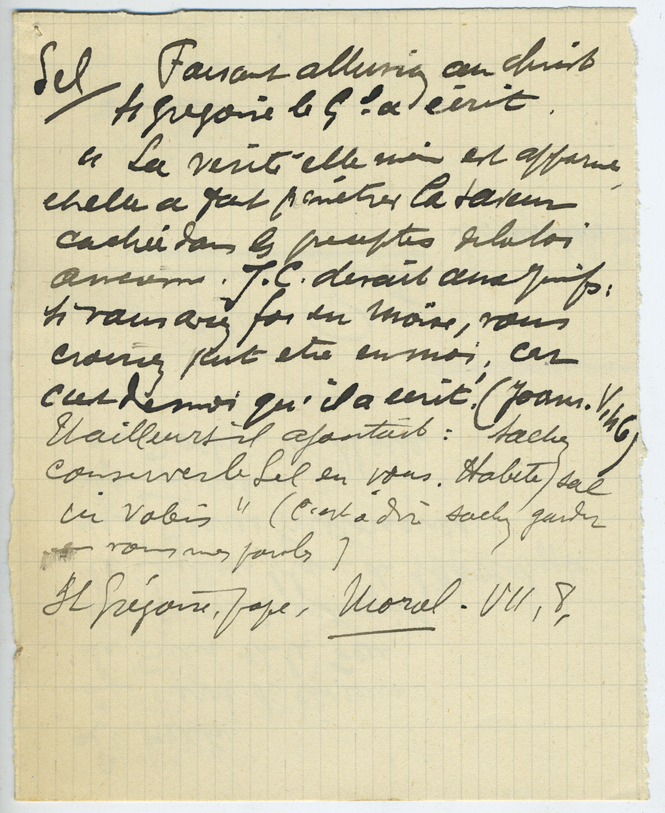 Sel / Faisant allusion au Christ
St Gregoire le Gd a écrit.
" La verité elle meme est apparue,
et elle a fait pénétrer la saveur
cachée dans les preceptes de la loi
ancienne. J.C. disait aux Juifs:
Si vous aviez foi en Moïse, vous
croiriez peut etre en moi, car
c'est de moi qu'il a écrit. (Joann. V, 46)
D'ailleurs il ajoutait : sachez
conserver le Sel en vous. Habete sal
in vobis " (c'est à dire sachez garder
vous mes paroles)
St Grégoire, pape, Moral. VII, 8,